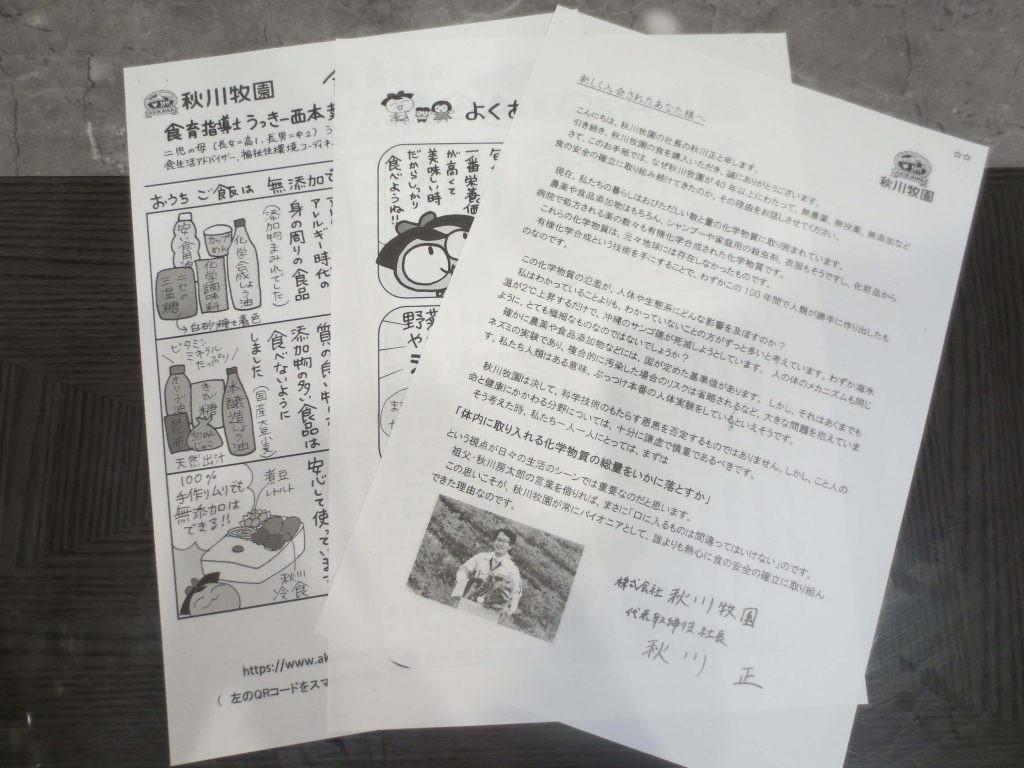 秋川牧園
食育指導士うっきー西本
二児の母(長女=高1、長男=中2)
食生活アドバイザー、福祉住環境コーディネ
おうちご飯は 無添加で
アレルギー時代の
身の周りの食品
(添加物まみれでした)
安い食用油
カップめん
化学合成しょう油
ニセの三温糖
化学調味料
→白砂糖を着色
質の良い
添加物の多い食品は
食べないように
しました
(国産大豆小麦)
ビタミン
ミネラル
たっぷり
オリーブ油
きび糖
本醸造しょう油
昆布
天然出汁
安心して使っています
100%
手作りムリでも
無添加は
できる!!
煮豆
レトルト
秋川
冷食
https://www.ak
( 左のQRコードをスマ
よくあ
一番栄養価
が高くて
美味しい時
だからしっかり
食べようね!!
野菜
や
新しく入会されたあなた様へ
☆☆
秋川牧園
こんにちは、秋川牧園の社長の秋川正と申します。
引き続き、秋川牧園の食を購入いただき、誠にありがとうございます。
さて、このお手紙では、なぜ秋川牧園が40年以上にわたって、無農薬、無投薬、無添加など
食の安全の確立に取り組み続けてきたのか、その理由をお話しさせてください。
現在、私たちの暮らしはおびただしい数と量の化学物質に取り囲まれています。
農薬や食品添加物はもちろん、シャンプーや家庭用の殺虫剤、衣服もそうですし、化粧品から
病院で処方される薬の数々も有機化学合成された化学物質です。
これらの化学物質は、元々地球には存在しなかったものです。
有機化学合成という技術を手にすることで、わずかこの100年間で人類が勝手に作り出したも
のなのです。
この化学物質の氾濫が、人体や生態系にどんな影響を及ぼすのか?
私はわかっていることよりも、わかっていないことの方がずっと多いと考えています。わずか海水
温が2℃上昇するだけで、沖縄のサンゴ礁が死滅しようとしています。人の体のメカニズムも同じ
ように、とても繊細なものではないでしょうか?
確かに農薬や食品添加物などには、国が定めた基準値があります。しかし、それはあくまでも
ネズミの実験であり、複合的に汚染した場合のリスクは省略されるなど、大きな問題を抱えていま
す。私たち人類はある意味、ぶっつけ本番の人体実験をしているといえそうです。
秋川牧園は決して、科学技術のもたらす恩恵を否定するものではありません。しかし、こと人の
命と健康にかかわる分野については、十分に謙虚で慎重であるべきです。
そう考えた時、私たち一人一人にとっては、まずは
「体内に取り入れる化学物質の総量をいかに落とすか」
という視点が日々の生活のシーンでは重要なのだと思います。
祖父・秋川房太郎の言葉を借りれば、まさに「口に入るものは間違ってはいけない」のです。
この思いこそが、秋川牧園が常にパイオニアとして、誰よりも熱心に食の安全の確立に取り組ん
できた理由なのです。
株式会社 秋川牧園
代表取締役社長
秋川 正